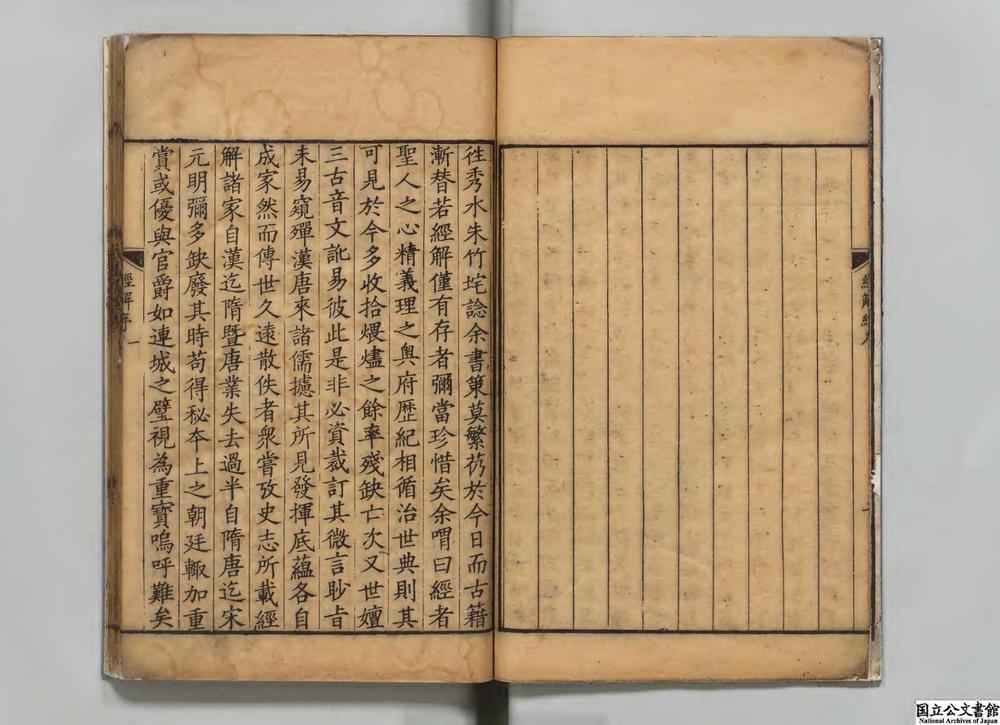 經解總八
徃秀水朱竹垞諗余書策莫繁茒於今日而古籍
漸替若經解僅有存者彌當珍惜矣余喟曰經者
聖人之心精義理之奥府歴紀相循治世典則其
可見於今多收拾煨燼之餘率殘缺亡次又世嬗
三古音文訛易彼此是非必資裁訂其微言眇㫖
未易窺殫漢唐來諸儒攄其所見發揮底蘊各自
成家然而傳世久遠散佚者衆嘗攷史志所載經
解諸家自漢迄隋暨唐業失去過半自隋唐迄宋
元明彌多缺廢其時苟得秘夲上之朝廷輙加重
賞或優與官爵如連城之璧視為重寳嗚呼難矣
經解序
一
国立公文書館
National Archives of Japan